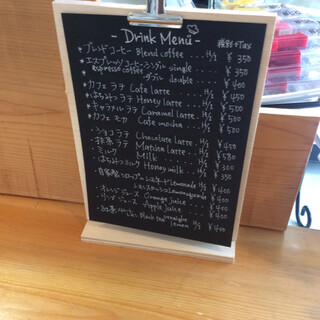 - Drink Menu -
税別+Tax
・ブレンドコーヒー Blend coffee ... H/I ¥350
・エスプレッソコーヒー シングル single ... ¥350
espresso coffee ダブル double ... ¥400
・カフェラテ Cafe latte ... H/I ¥450
・はちみつラテ Honey latte ... H/I ¥500
・キャラメルラテ Caramel latte ... H/I ¥500
・カフェモカ Cafe mocha ... H/I ¥500
・ショコラテ Chocolate latte ... H/I ¥400
・抹茶ラテ Matcha latte ... H/I ¥580
・ミルク Milk ... H/I ¥300
・はちみつミルク Honey milk ... H/I ¥350
・自家製シロップの レモネード Lemonade H/I ¥400
¥400
・オレンジジュース Orange juice ... ¥400
・リンゴジュース Apple juice ... ¥400
・紅茶 Black tea straight
lemon H/I ¥400